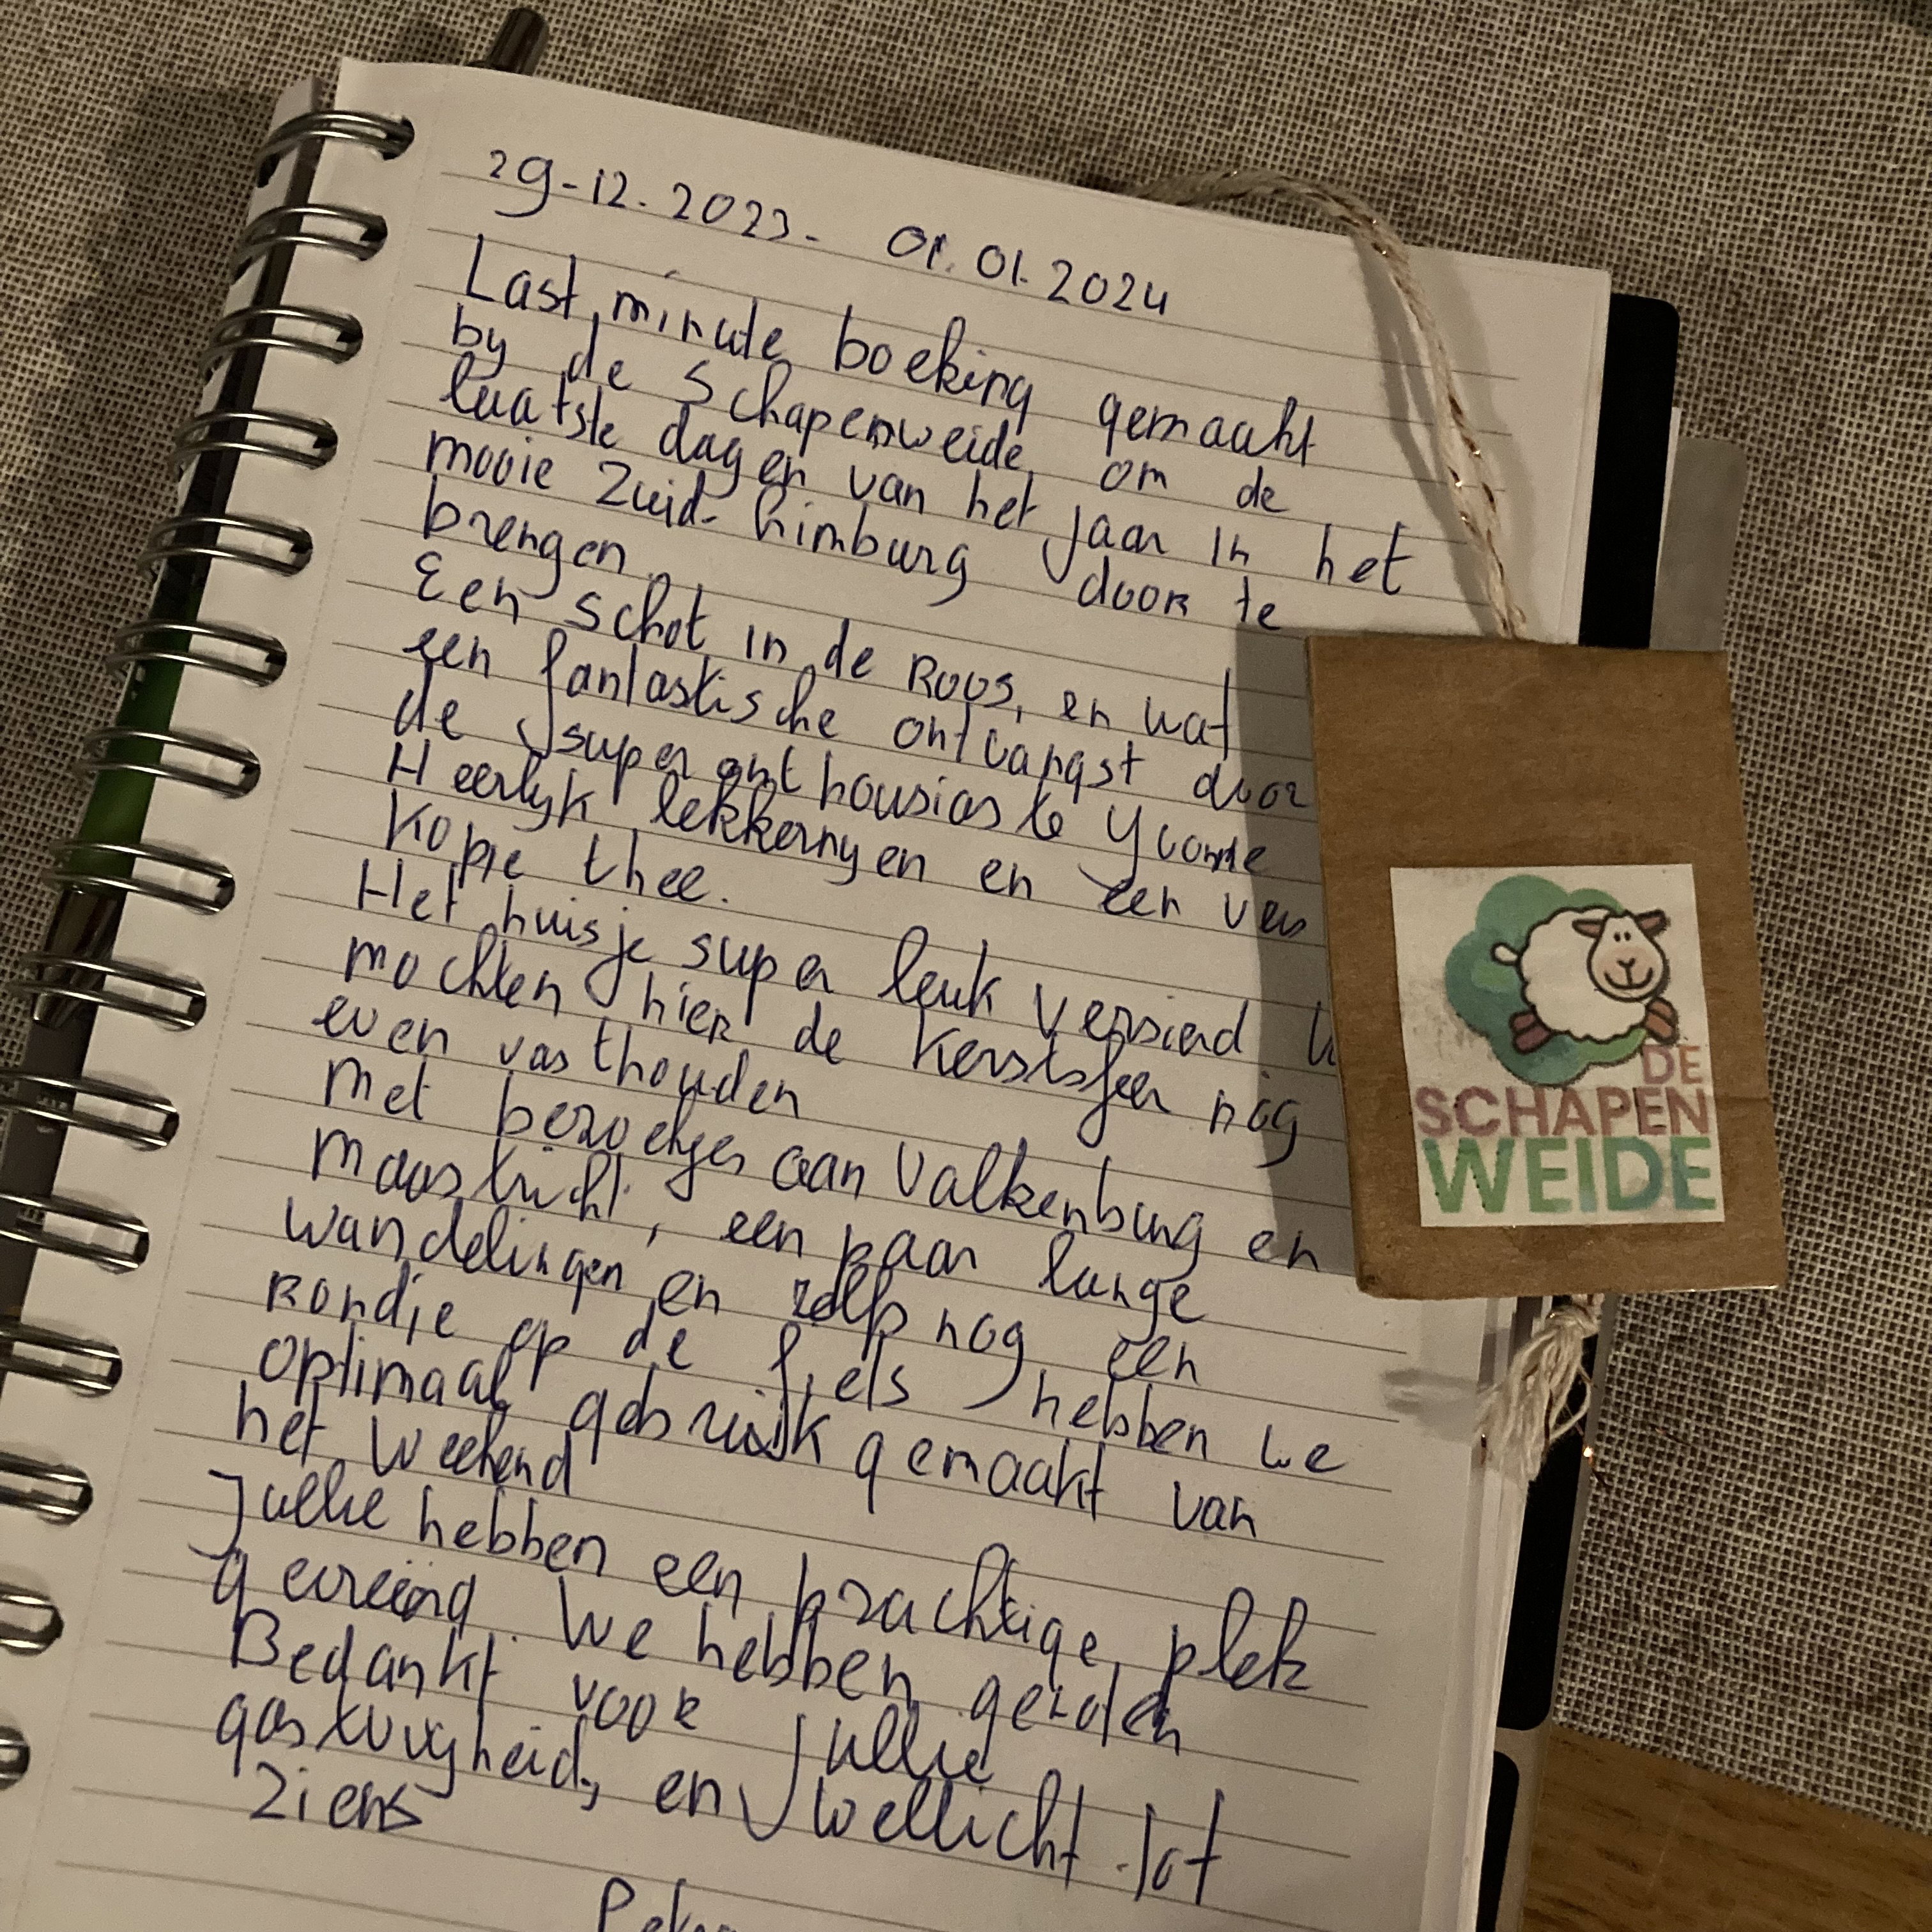 29-12.2023- 01.01.2024
Last minute boeking gemaakt
by de Schapenweide, om de
laatste dagen van het jaar in het
mooie Zuid-Limburg door te
brengen.
Een schot in de Roos, en wat
een fantastische ontvangst door
de super enthousiaste Yvonne
Heerlyk lekkernyen en een vers
Kopje thee.
Het huisje super leuk versierd
mochten hier de Kerstsfeer nog
even vasthouden
Met bezoekjes aan Valkenburg en
Maastricht, een paar lange
wandelingen en zelfs nog een
Rondje op de fiets hebben we
optimaal gebruik gemaakt van
het Weekend
Jullie hebben een prachtige plek
gecreëerd. We hebben genoten
Bedankt voor jullie
gastvryheid, en wellicht tot
Ziens
DE
SCHAPEN
WEIDE